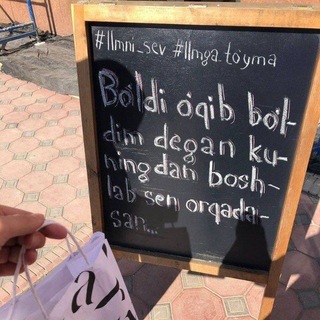 #Ilmni_sev #Ilmga_to'yma
Bo'ldi o'qib bo'l-
dim degan ku-
ningdan bosh-
lab sen orqada-
san...